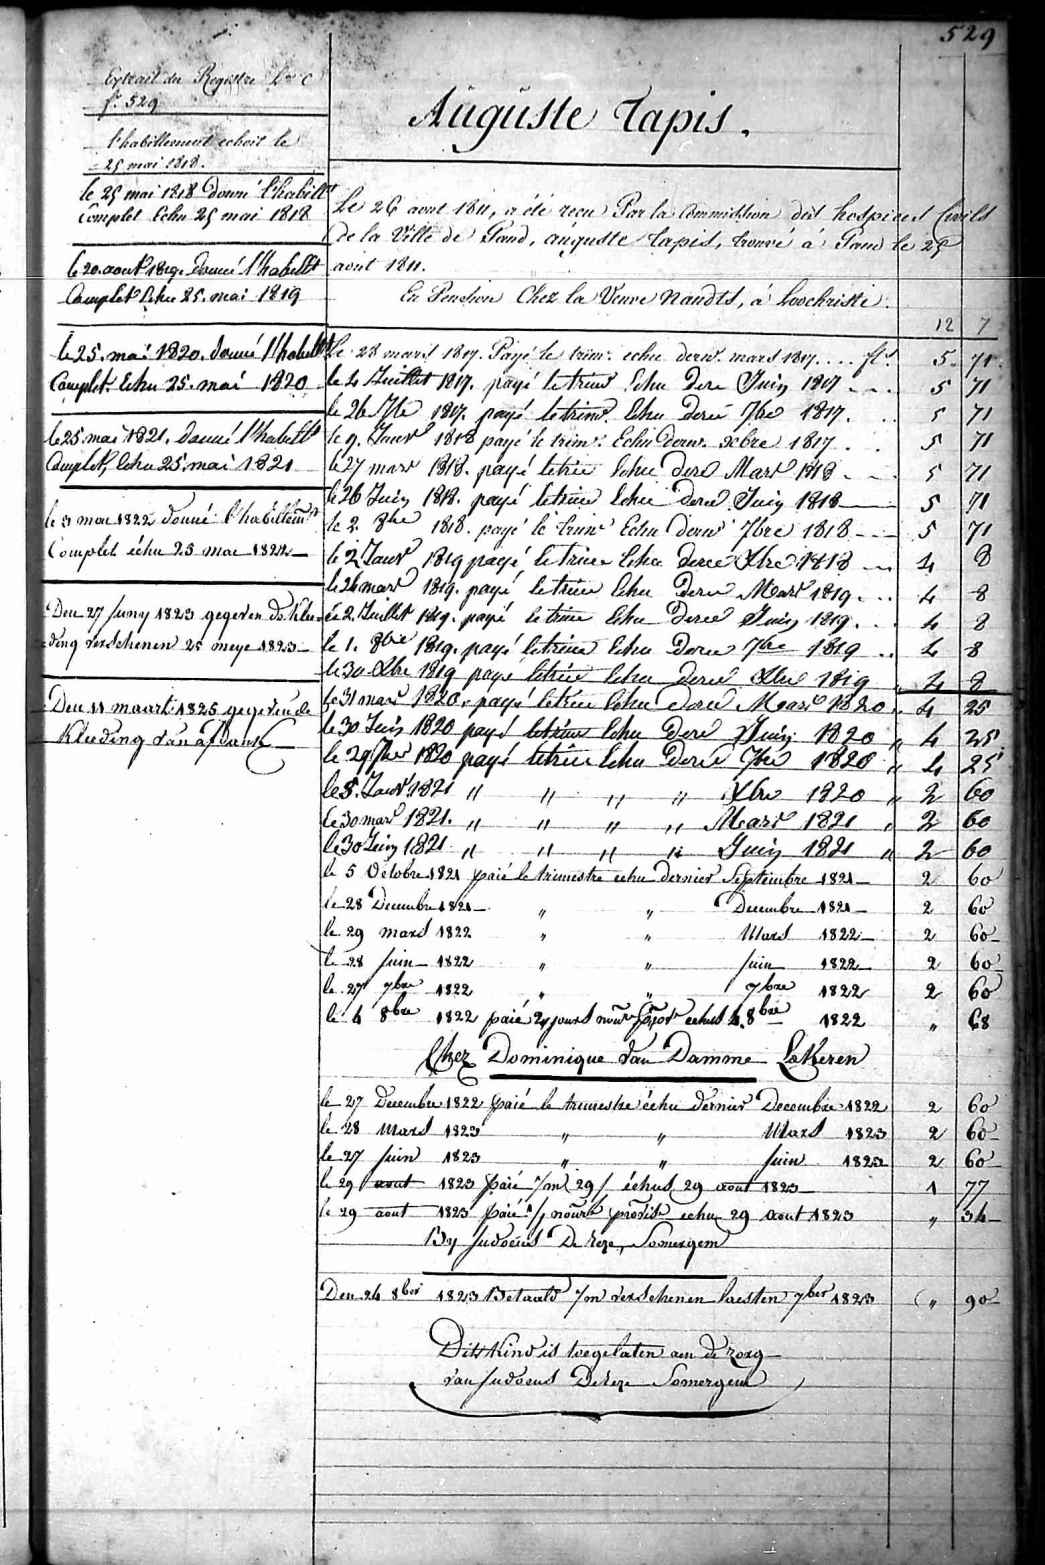 529
Extrait du Registre Lre C
fo. 529
l'habillement echoit le
25 mai 1818.
le 25 mai 1818 Donné l'habillt
Complet Echu 25 mai 1818
le 20. aout 1819. Donné l'habillt
Complet Echu 25. mai 1819
le 25. mai 1820. Donné l'habillt
Complet. Echu 25. mai 1820
le 25 mai 1821. Donné l'habillt
Complet, Echu 25. mai 1821
le 31 mai 1822 donné l'habillemt
Complet échu 25 mai 1822
Den 27 Juny 1823 gegeven de klee-
ding verschenen 25 meye 1823
Den 11 maart 1825 gegeven de
Kleeding van afdank
Auguste Tapis.
Le 26 aout 1811, a été recu Par la Commission des hospices Civils
de la Ville de Gand, auguste Tapis, trouvé à Gand le 25
aout 1811.
En Pension Chez la Veuve Naudts, à Loochristi.
12 7
Le 28 mars 1817. Payé le trim. echu dernr. mars 1817 .... fls. 5 71
le 4 Juillet 1817. payé le trim Echu Derr Juin 1817 5 71
le 26 7bre 1817. payé le trim. Echu Derr 7bre 1817. 5 71
le 9. Janvr 1818 payé le trim. Echu dernr. xbre 1817 5 71
le 27 mars 1818. payé le trim Echu Derr Mars 1818 5 71
le 26 Juin 1818. payé le trim Echu Derr Juin 1818 5 71
le 2 8bre 1818. payé le trim Echu dernr 7bre 1818 5 71
le 2 Janvr 1819 payé le trim Echu derr Xbre 1818 4 8
le 26 mars 1819. payé le trim Echu Derr Mars 1819. 4 8
le 2. Juillet 1819. payé le trim Echu Derr Juin 1819. 4 8
le 1. 8bre 1819. payé le trim Echu Derr 7bre 1819 4 8
le 30 Xbre 1819 payé le trim Echu Derr Xbre 1819 " 4 8
le 31 mars 1820. payé le trim Echu derr Mars 1820 4 25
le 30 Juin 1820 payé le trim Echu Derr Juin 1820 " 4 25
le 29 7bre 1820 payé le trim Echu Derr 7bre 1820 " 4 25
le 5. Janvr 1821 " " " " Xbre 1820 " 2 60
le 30 mars 1821. " " " " Mars 1821 " 2 60
le 30 Juin 1821 " " " " Juin 1821 " 2 60
le 5 Octobre 1821 paié le trimestre echu dernier Septembre 1821 2 60
le 28 Decembre 1821 " " Decembre 1821 2 60
le 29 mars 1822 " " Mars 1822 2 60
le 28 Juin 1822 " " Juin 1822 2 60
le 27 7bre 1822 " " 7bre 1822 2 60
le 4 8bre 1822 paié jours echus 4. 8bre 1822 " 68
Chez Dominique Van Damme Lokeren
le 27 Decembre 1822 paié le trimestre échu dernier Decembre 1822 2 60
le 28 Mars 1823 " " Mars 1823 2 60
le 27 Juin 1823 " " Juin 1823 2 60
le 29 aout 1823 paié /m 29/ échus 29 aout 1823 1 77
le 29 aout 1823 paié echu 29 aout 1823 " 34
By Judocus De Reze, Somergem
Den 24 8ber 1823 Betaald /m verschenen laesten 7ber 1823 " 90
Dit Kind is toegelaten aen de Zorg
van Judocus De Reze Somergem